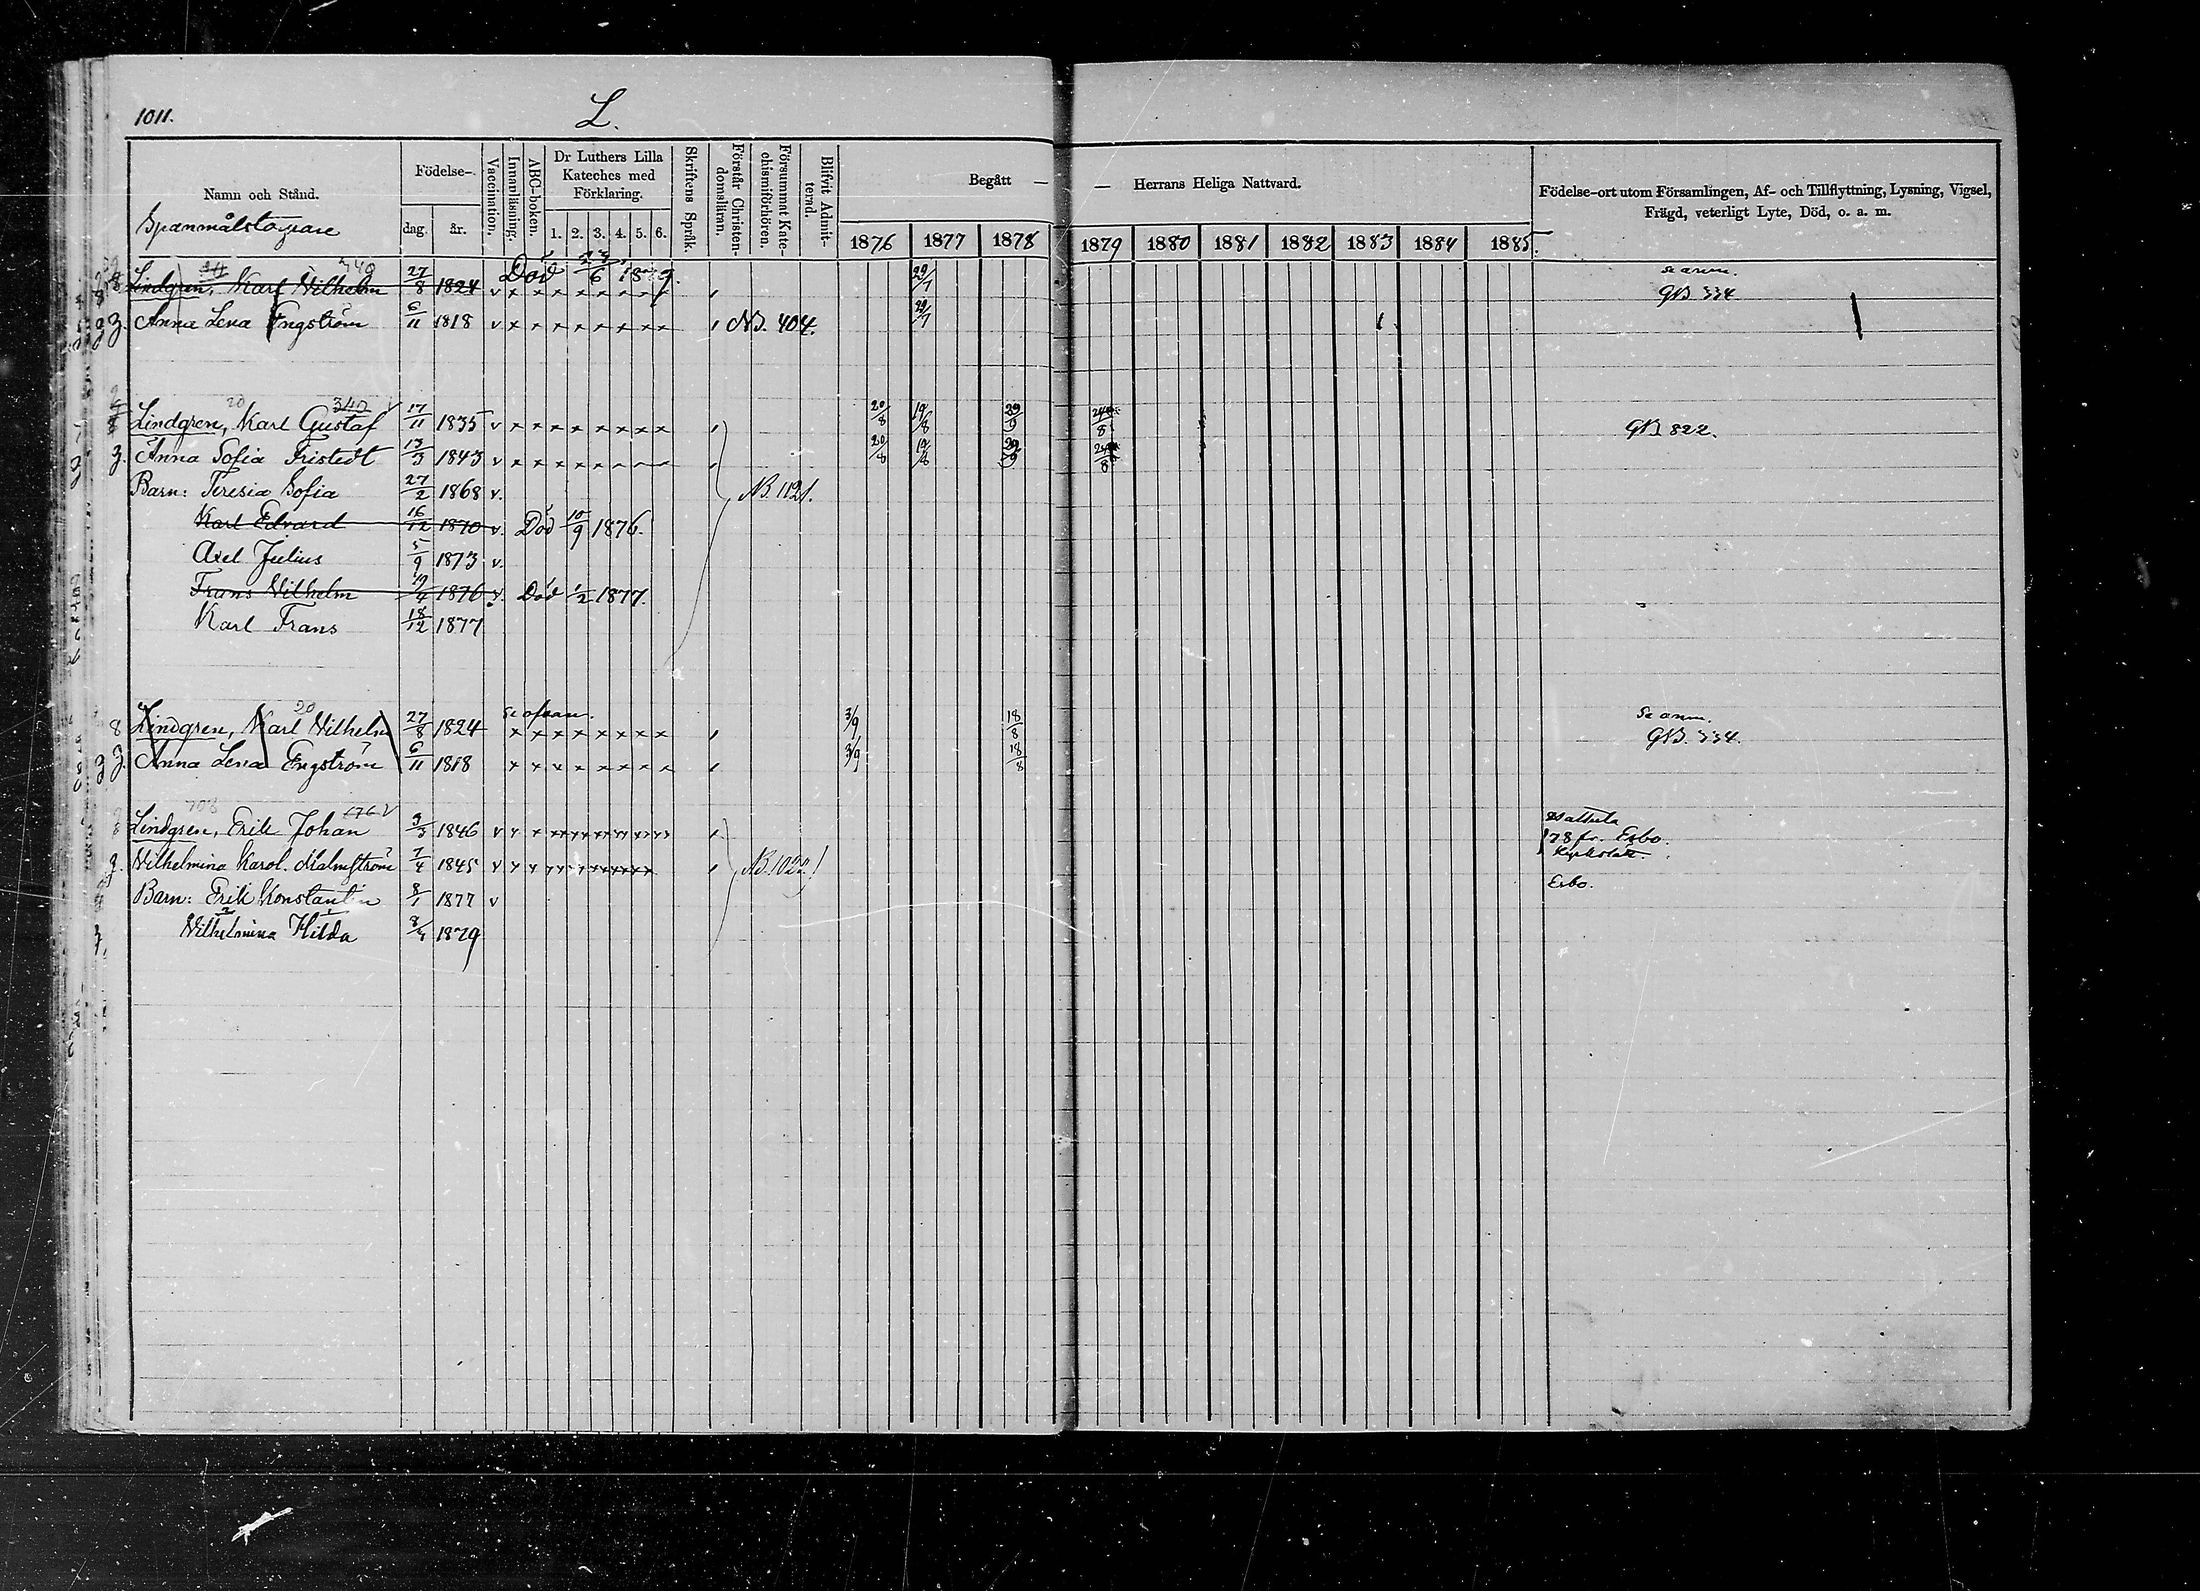 1011.
L.
Namn och Stånd.
Födelse-
dag.
år.
Vaccination.
Innanläsning.
ABC-boken.
Dr Luthers Lilla
Kateches med
Förklaring.
1. 2. 3. 4. 5. 6.
Skriftens Språk.
Förstår Christen-
domsläran.
Försummat Kate-
chismiförhören.
Blifvit Admit-
terad.
Begått — — Herrans Heliga Nattvard.
1876 1877 1878 1879 1880 1881 1882 1883 1884 1885.
Födelse-ort utom Församlingen, Af- och Tillflyttning, Lysning, Vigsel,
Frägd, veterligt Lyte, Död, o. a. m.
Lindgren, Karl Wilhelm 27/8 1824 v Död 1879. 29/7
GB 334
Anna Lena Engström 6/11 1818 v NB. 404. 29/7
340
Lindgren, Karl Gustaf 17/11 1835 v 20/8 19/8 29/9 24/8 GB 822.
Anna Sofia Fristedt 13/3 1843 v 20/8 19/8 29/9 24/8
Barn: Teresia Sofia 27/2 1868 v. NB. 1121.
Karl Edvard 16/12 1870 v. Död 10/9 1876.
Axel Julius 5/9 1873 v.
Frans Wilhelm 1876 v. Död 1/2 1877.
Karl Frans 18/12 1877
20
Lindgren, Karl Wilhelm 27/8 1824 3/9 18/8
GB. 334.
Anna Lena Engström 6/11 1818 3/9 18/8
708
Lindgren, Erik Johan 3/3 1846 v
78 fr. Esbo.
Wilhelmina Karol. Malmström 1845 v NB. 1022.
Barn: Erik Konstantin 8/1 1877 v Esbo.
Wilhelmina Hilda 1879